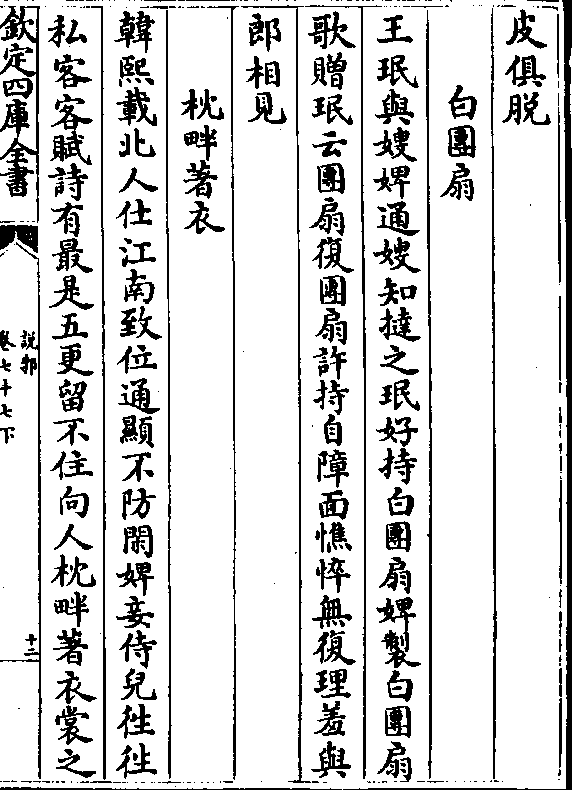 皮俱脱
白團扇
王珉與嫂婢通嫂知撻之珉好持白團扇婢製白團扇
歌贈珉云團扇復團扇許持自障面憔悴無復理羞與
郎相見
枕畔著衣
韓熙載北人仕江南致位通顯不防閑婢妾侍兒徃徃
私客客賦詩有最是五更留不住向人枕畔著衣裳之
欽定四庫全書
說郛
卷七十七下
十二